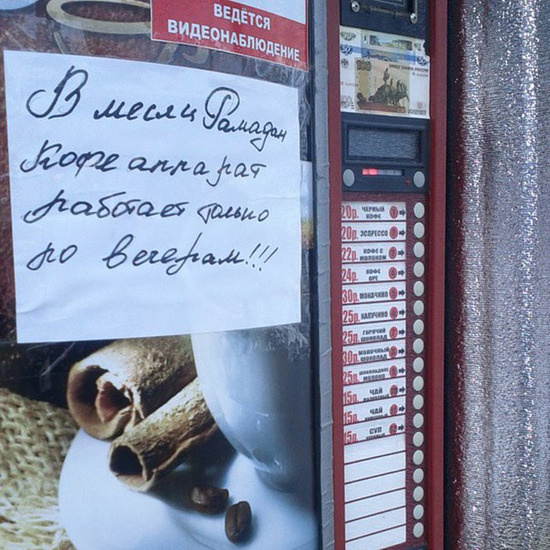 ВЕДЁТСЯ
ВИДЕОНАБЛЮДЕНИЕ
В месяц Рамадан
Кофе аппарат
работает только
по вечерам!!!
20р. ЧЕРНЫЙ КОФЕ
20р. ЭСПРЕССО
22р. КОФЕ С МОЛОКОМ
24р. КОФЕ
30р. МОКАЧИНО
25р. КАПУЧИНО
25р. ГОРЯЧИЙ ШОКОЛАД
30р. МОЛОЧНЫЙ ШОКОЛАД
25р. МОЛОКО
15р. ЧАЙ
15р. ЧАЙ
15р. СУП